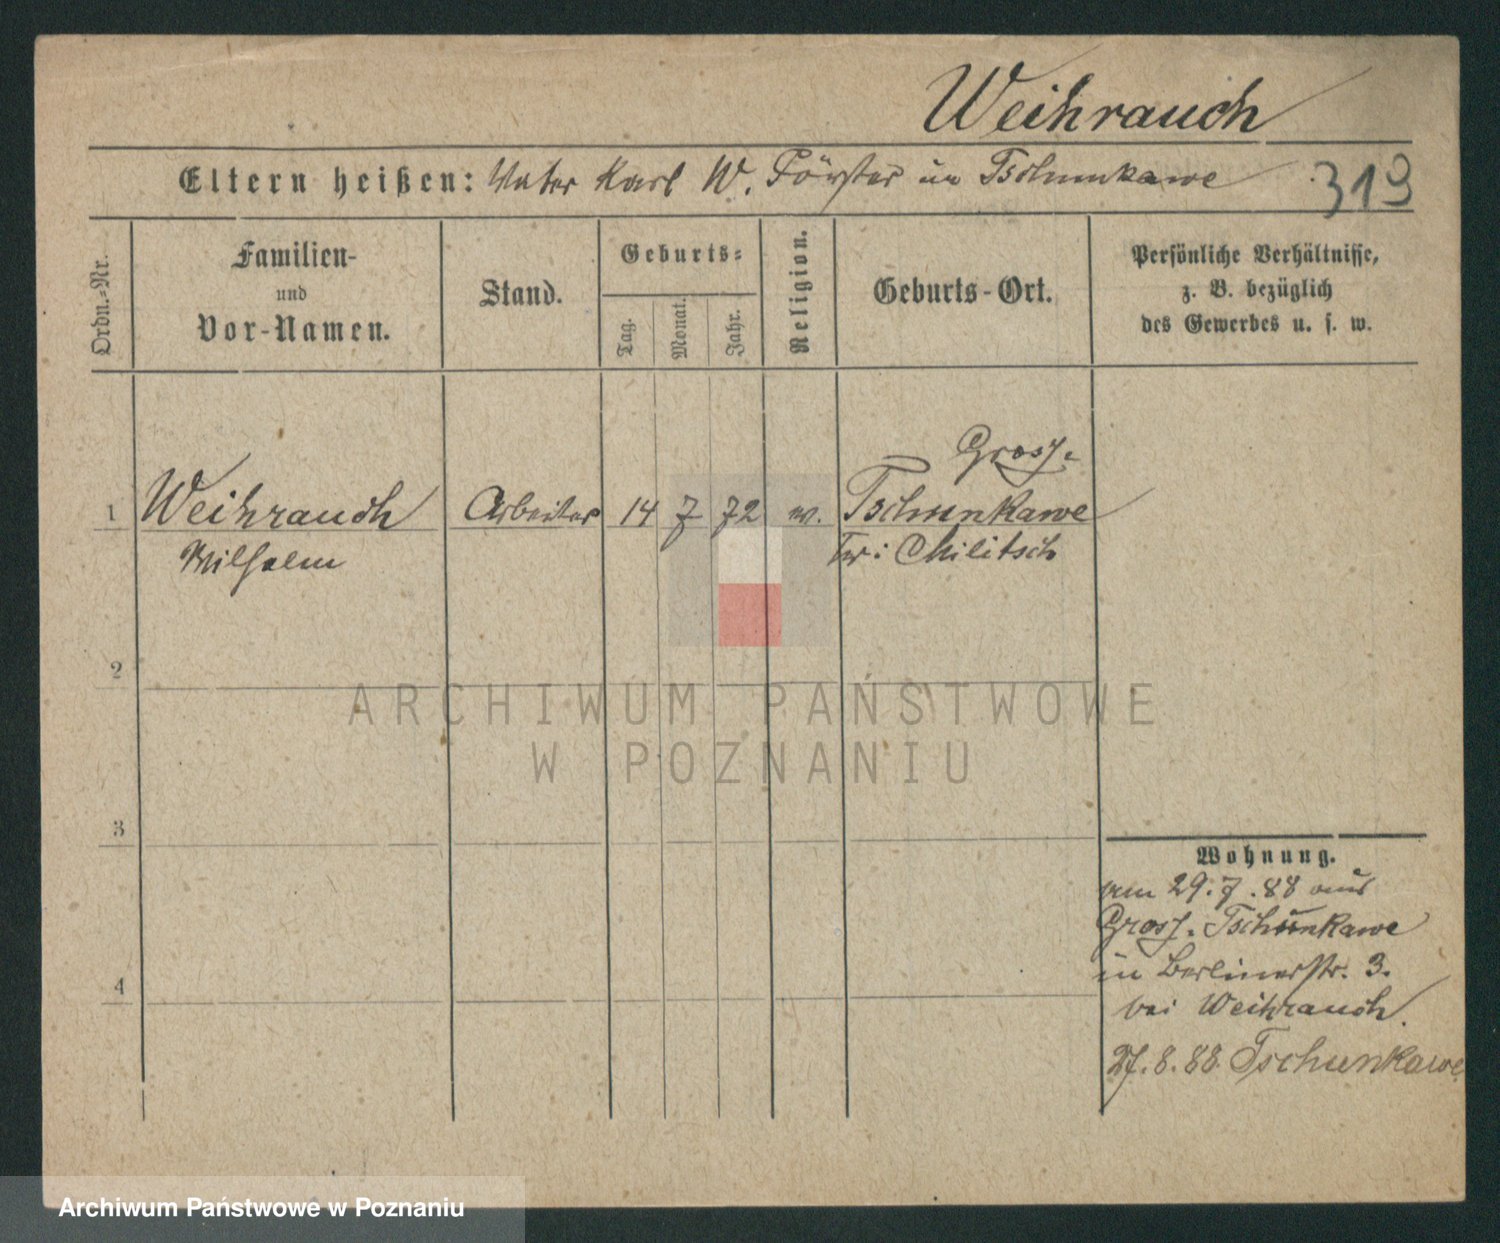 Weihrauch
Eltern heißen: Vater Karl W. Förster in Tschunkawe
319
Ordn.-Nr.
Familien-
und
Vor-Namen.
Stand.
Geburts-
Tag.
Monat.
Jahr.
Religion.
Geburts-Ort.
Persönliche Verhältnisse,
z. B. bezüglich
des Gewerbes u. s. w.
1 Weihrauch Arbeiter 14 7 72 Gross-
Tschunkawe
Wilhelm Kr: Militsch
2
3
4
Wohnung.
am 29.7.88 aus
Gross-Tschunkawe
in Berlinerstr. 3.
bei Weihrauch.
27.8.88 Tschunkawe
ARCHIWUM PAŃSTWOWE
W POZNANIU
Archiwum Państwowe w Poznaniu